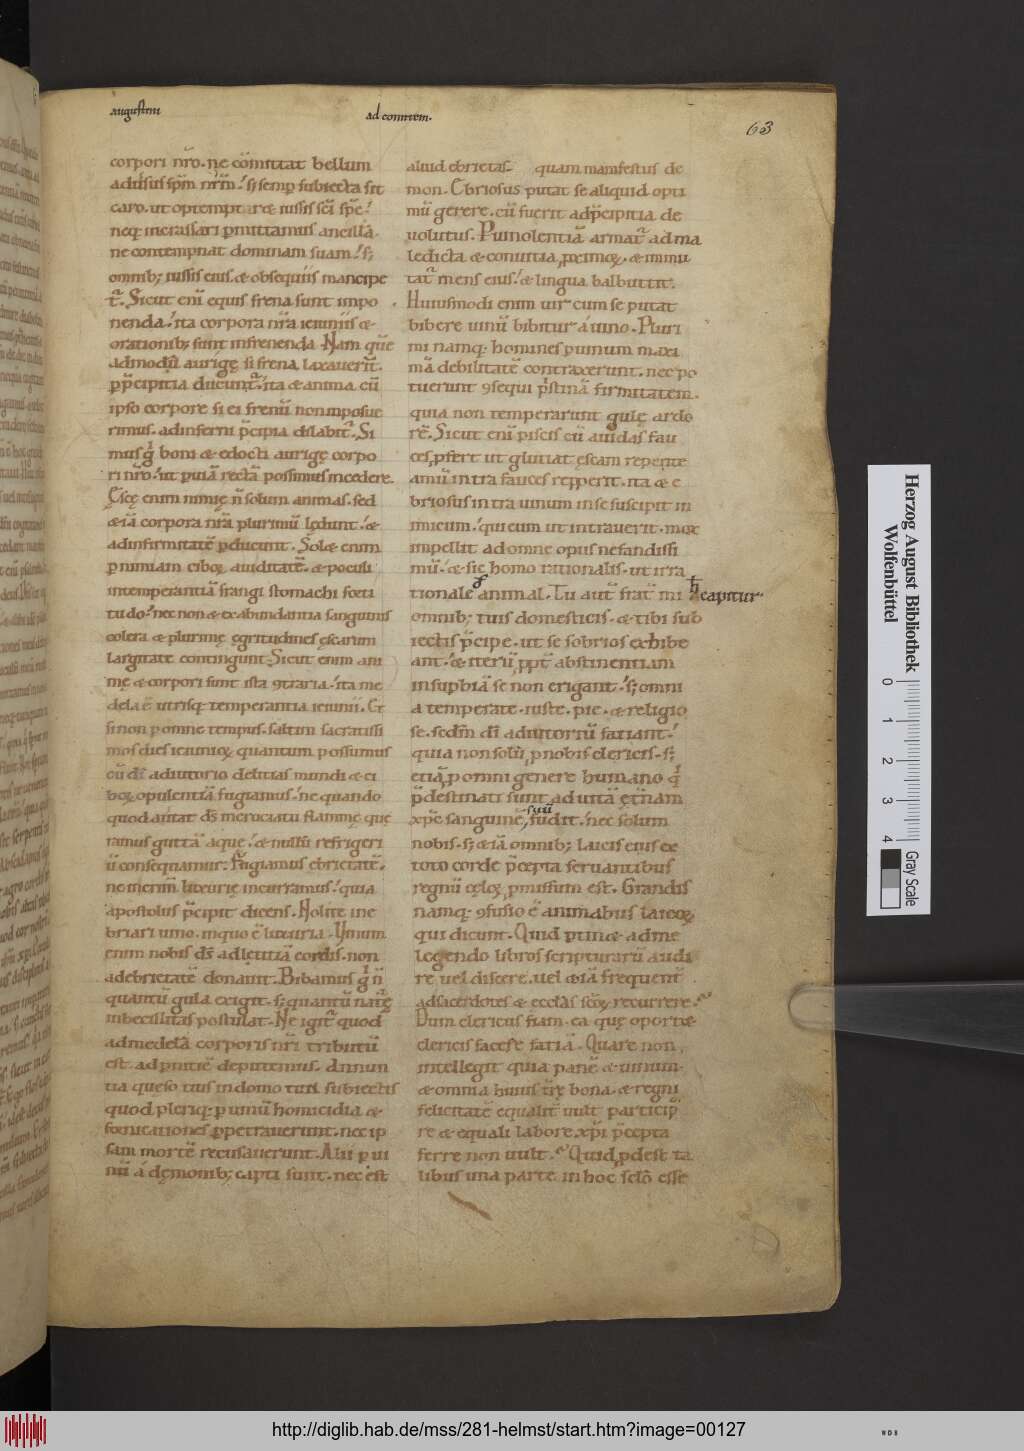 augustini
ad comitem.
63
corpori nr̄o. ne cōmittat bellum
aduers̄us sp̄m nr̄m.' s; semp̄ subiecta sit
caro. ut optemptaræ iussis sc̄i sp̄c.'
neq; incrassari p̄mittamus ancillā.
ne contempnat dominam suam.' s;
omnib; iussis eius. & obsequiis mancipe
t̄. Sicut enī equis frena sunt impo
nenda.' ita corpora nr̄a ieiuniis &
orationib; sunt infrenenda. Nam quē
admodū aurigę si frena laxauerīt.
p̄cipitia ducunt̄.' ita & anima cū
ipso corpore si ei frenū non inposue
rimus. ad inferni p̄cipia dilabit̄. Si
mus g̊ boni & edocti aurigę corpo
ri nr̄o.' ut p uiā rectā possimus incedere.
Ęscę enim nimię n̄ solum animas. sed
& iā corpora nr̄a plurimū lędunt.' &
ad infirmitatē p̄ducunt. Solæ enim
p nimiam ciboꝝ auiditatē. & poculi
intemperantiā frangi stomachi soeti
tudo.' nec non & ex abundantia sanguinis
colera & plurimę ęgritudines ęscarum
largitate contingunt. Sicut enim ani
mę & corpori sunt ista ꝯtraria.' ita me
dela ē utrisq; temperantia ieiunii. Et
si non p omne tempus. saltim sacratissi
mos dies ieiunioꝝ quantum possumus
cū dī adiutorio delitias mundi & ci
boꝝ opulentiā fugiamus.' ne quando
quod auīat ds̄ in cruciatu flammę quę
ramus guttā aquę.' & nullū refrigeri
ū consequamur. Fugiamus ebrietatē.
ne in crim̄ luxurię incurramus.' quia
apostolus p̄cipit dicens. Nolite ine
briari uino. in quo ē luxuria. Vinum
enim nobis ds̄ ad lętitiā cordis. non
ad ebrietatē donauit. Bibamus g̊ n̄
quantū gula exigit. s; quantū nat̄ę
inbecillitas postulat. Ne igit̄ quod
ad medelā corporis nr̄i tributū
est. ad p̄nitiē deputemus.
tia queso tuis in domo tua subiectis
quod pleriq; p uinū homicidia &
fornicationes ppetrauerunt. nec ip
sam mortē recusauerunt. Alii p ui
nū á dęmonib; capti sunt. nec est
aliud ebrietas. quam manifestus de
mon. Ebriosus putat se aliquid opti
mū gerere. cū fuerit ad p̄cipitia de
uolutus. P uinolentiā armat̄ ad ma
ledicta & conuitia, p̄ximoꝝ. & inmu
tat̄ mens eius.' & lingua balbuttit.
Huiusmodi enim uir cum se putat
bibere uinū bibitur á uino. Pluri
mi namq; homines p uinum maxi
mā debilitatē contraxerunt. nec po
tuerunt ꝯsequi p̄stinā firmitatem.
quia non temperarunt gulę ardo
rē. Sicut enī piscis cū auidas fau
ces, pfert ut glutiat ęscam repente
amū intra fauces repperit. ita & e
briosus intra uinum in se suscipit in
imicum.' qui eum ut intrauerit. mox
impellit ad omne opus nefandissi
mū.' & sic homo rationalis. ut irra
tionale animal. Tu aut̄ frat̄ mi
capitur.
omnib; tuis domesticis. & tibi sub
iectis p̄cipe. ut se sobrios exhibe
ant.' & iterū, ppt̄ abstinentiam
in supbiā se non erigant.' s; omni
a temperate. iuste. pie. & religio
se. sedm̄ dī adiutoriū faciant.'
quia non solū, p nobis clericis. s;
etiā, p omni genere humano q̊
p̄destinati sunt ad uitā ęt̄nam
xp̄c sanguinē, suū fudit.' nec solum
nobis. s; & iā omnib; laicis eius ex
toto corde p̄cepta seruantibus
regnū cęloꝝ, pmissum est. Grandis
namq; ꝯfusio ē animabus laicoꝝ
qui dicunt. Quid p̄tin& ad me
legendo libros scripturarū audi
re uel discere. uel &iā frequent̄
ad sacerdotes & ecclās sc̄oꝝ recurrere.
Dum clericus fiam. ea quę oport&
clericis facere faciā. Quare non
intellegit quia panē & uinum.
& omnia huius t̄rę bona. & regni
felicitatē equalit̄ uult particip̄
re & equali labore. xp̄i p̄cepta
ferre non uult. Quid, pdest ta
libus una parte in hoc sc̄lō esse
Herzog August Bibliothek
Wolfenbüttel
0 1 2 3 4
Gray Scale
http://diglib.hab.de/mss/281-helmst/start.htm?image=00127